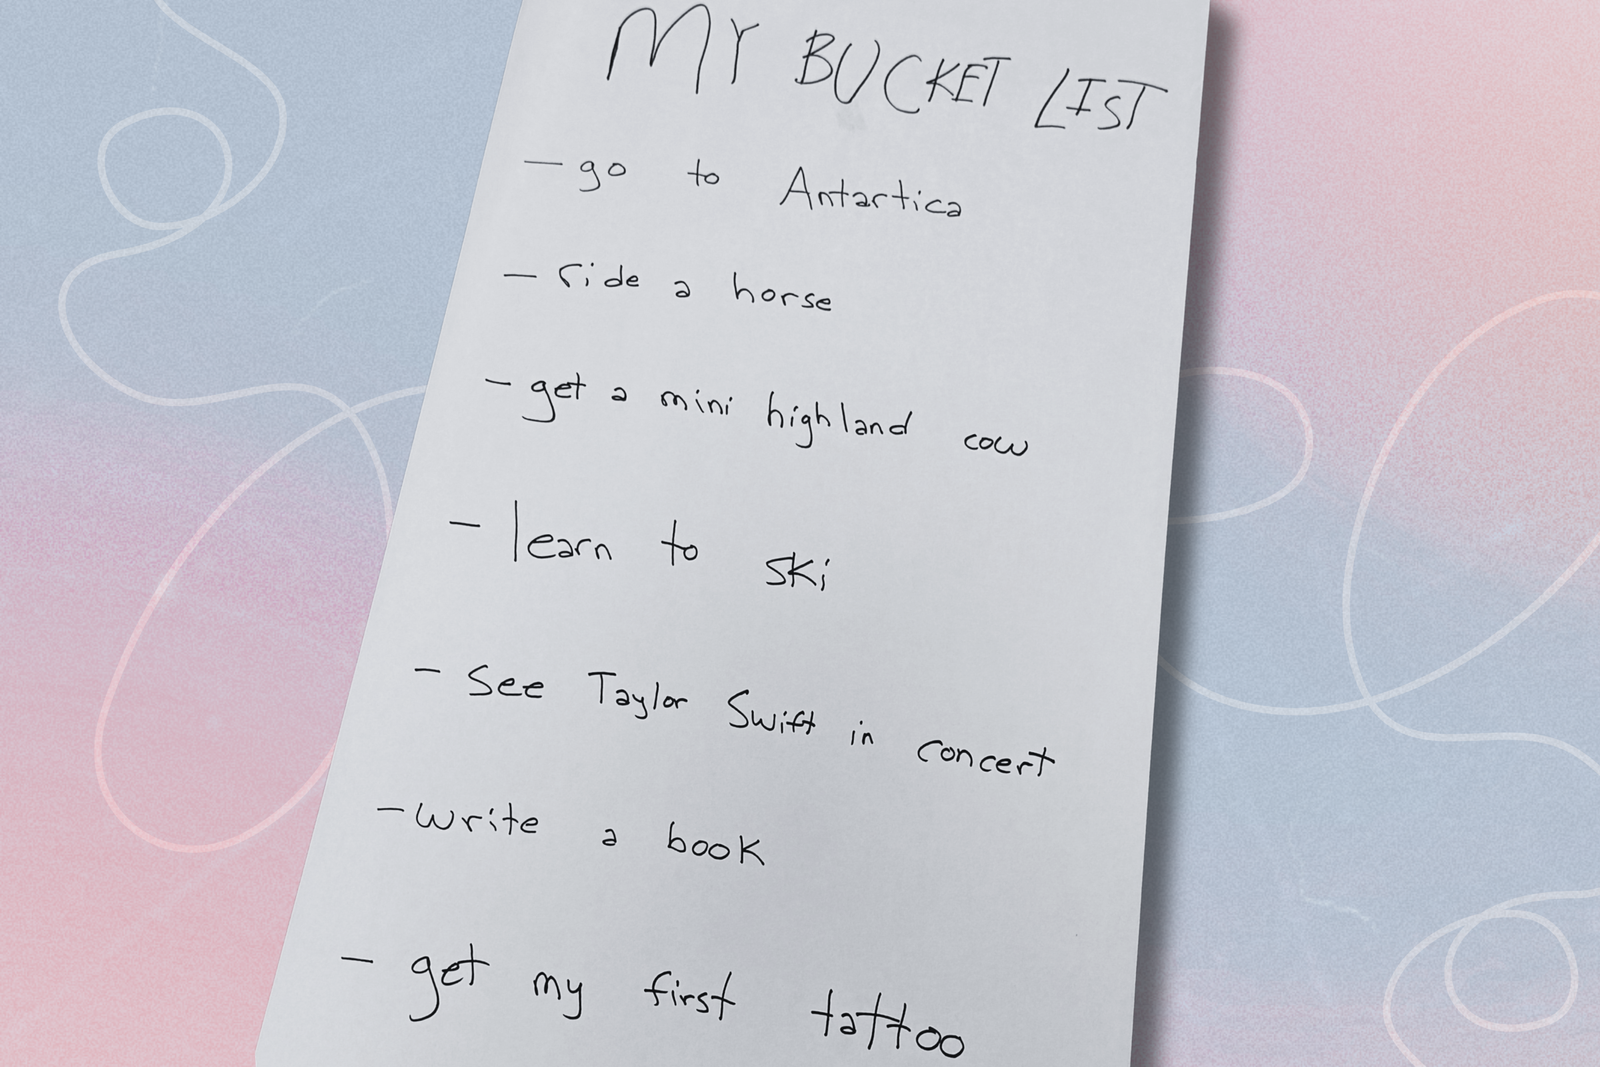 MY BUCKET LIST
- go to Antartica
- ride a horse
- get a mini highland cow
- learn to ski
- see Taylor Swift in concert
- write a book
- get my first tattoo